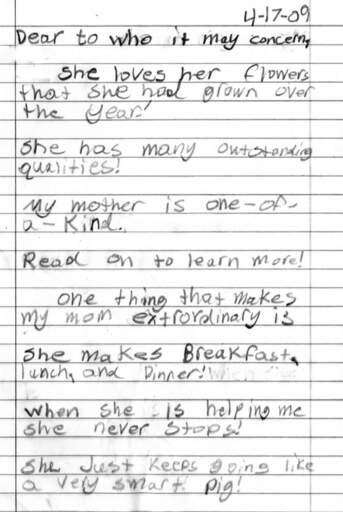 4-17-09
Dear to who it may concern,
She loves her flowers
that she had grown over
the year!
She has many outstanding
qualities!
My mother is one-of-
a-kind.
Read on to learn more!
one thing that makes
my mom extrordinary is
she makes Breakfast,
lunch, and Dinner!
when she is helping me
she never stops!
She Just keeps going like
a very smart pig!